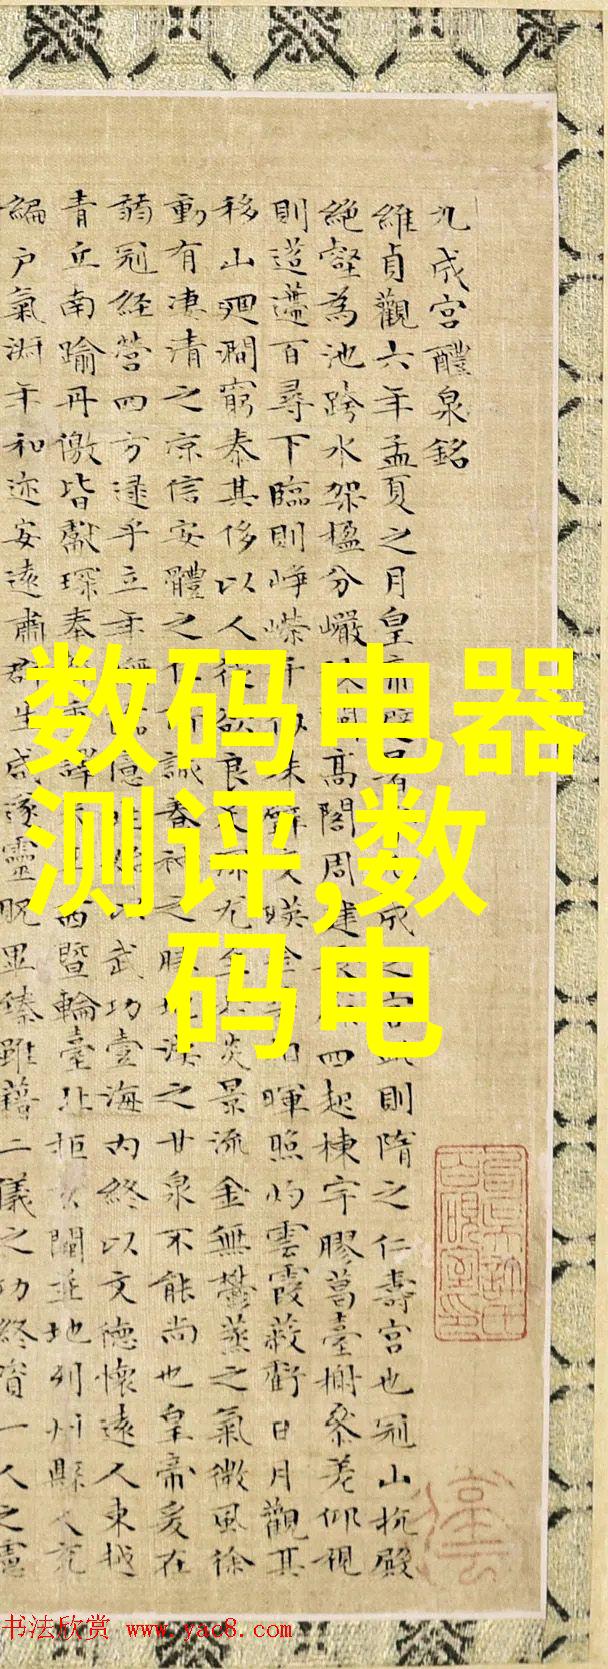 九成宮醴泉銘
維貞觀六年孟夏之月皇帝避暑乎九成之宮此則隋之仁壽宮也冠山抗殿
絶壑為池跨水架楹分巖竦闕高閣周建長廊四起棟宇膠葛臺榭參差仰視
則迢遰百尋下臨則崢嶸千仞珠璧交暎金碧相暉照灼雲霞蔽虧日月觀其
移山廻澗窮泰其侈以人從欲良足深尤至於炎景流金無鬱蒸之氣微風徐
動有凄清之凉信安體之佳所誠養神之勝地漢之甘泉不能尚也皇帝爰在
弱冠經營四方逮乎立年臨億兆始以武功壹海内終以文德懷遠人東越
青丘南踰丹儌皆獻琛奉重譯來西暨輪臺北拒玄闕並地列州縣人充
編户氣淑年和迩安遠肅群生咸遂靈貺畢臻雖藉二儀之功終資一人之慮
数码电器
测评,数
码电
书法欣赏 www.yac8.com